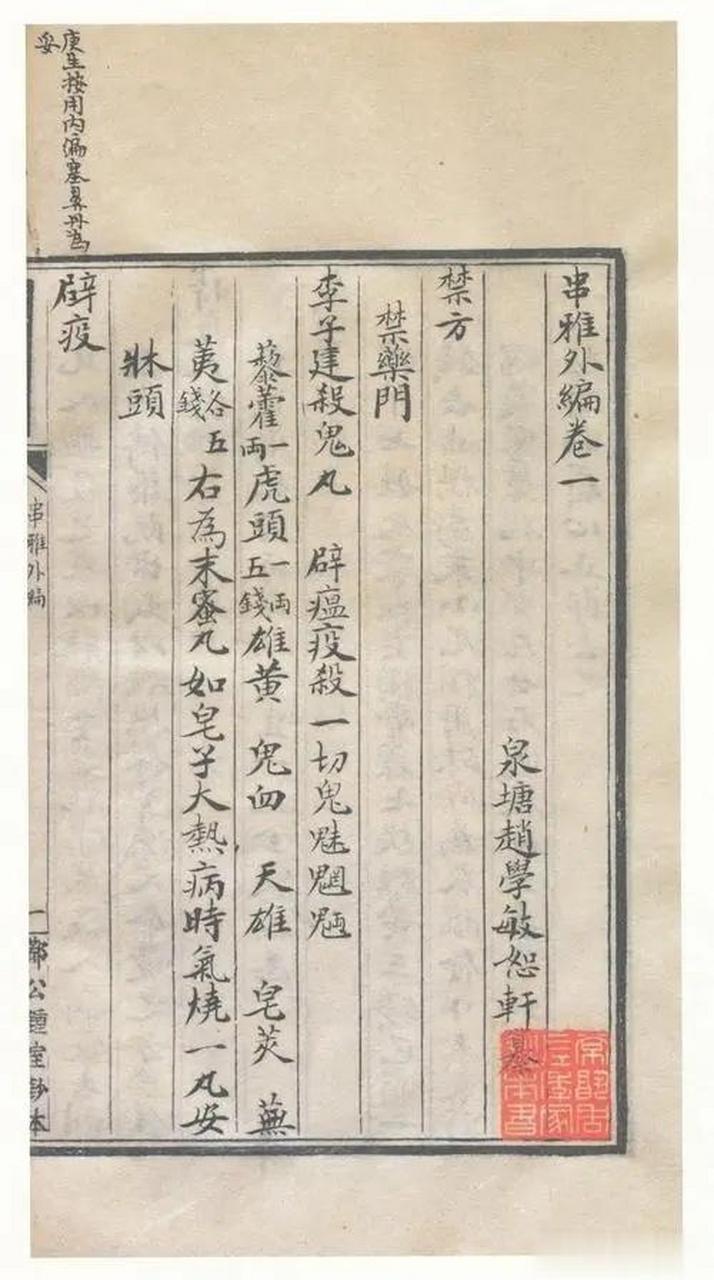 串雅外編卷一
泉塘趙學敏恕軒纂
禁方
禁藥門
李子建殺鬼丸 辟瘟疫殺一切鬼魅魍魎
藜藿一兩虎頭一兩五錢雄黃 鬼臼 天雄 皂莢 蕪
荑各五錢右為末蜜丸如皂子大熱病時氣燒一丸安
牀頭
辟疫
庚生按用內編塞鼻丹為
妥
串雅外編
公鍾室鈔本